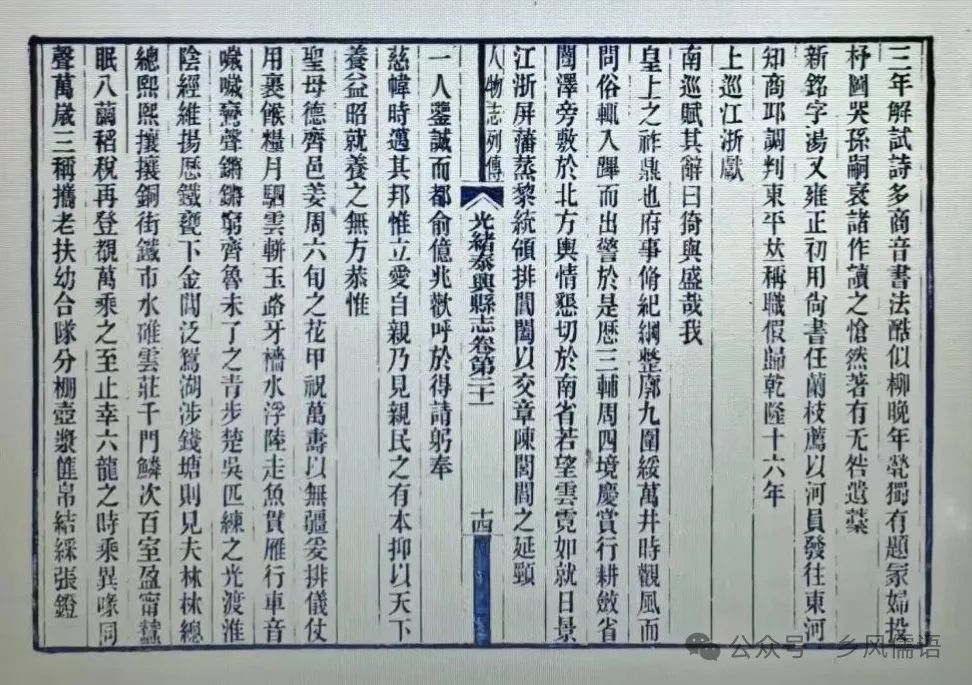 三年解試詩多商音書法酷似柳晚年煢獨有題冢婦投
杼圖哭孫嗣衰諸作讀之愴然著有无咎遺藁
新銘字湯又雍正初用尙書任蘭枝薦以河員發往東河
知商邱調判東平玆稱職假歸乾隆十六年
上巡江浙獻
南巡賦其辭曰猗與盛哉我
皇上之祚鼎也府事脩紀綱整廓九圍綏萬井時觀風而
問俗輒入蹕而出警於是歴三輔周四境慶賞行耕斂省
闓澤旁敷於北方輿情懇切於南省若望雲霓如就日景
江浙屏藩蒸黎統領排閶闔以交章陳閭閻之延頸
人物志列傳
光緒泰興縣志卷第二十一
十四
一人鑒誠而都俞億兆歡呼於得請躬奉
慈幃時邁其邦惟立愛自親乃見親民之有本抑以天下
養益昭就養之無方恭惟
聖母德齊邑姜周六旬之花甲祝萬壽以無疆爰排儀仗
用裹餱糧月駟雲軿玉路牙檣水浮陸走魚貫雁行車音
噦噦鸞聲鏘鏘窮齊魯未了之青步楚吳匹練之光渡淮
陰經維揚歴鐵甕下金閶泛鴛湖涉錢塘則見夫林林總
總熙熙攘攘銅街鐵市水碓雲莊千門鱗次百室盈甯蠶
眠八繭稻稅再登覩萬乘之至止幸六龍之時乘異喙同
聲萬歲三稱攜老扶幼合隊分棚壺漿篚帛結綵張鐙
公众号·乡风儒语